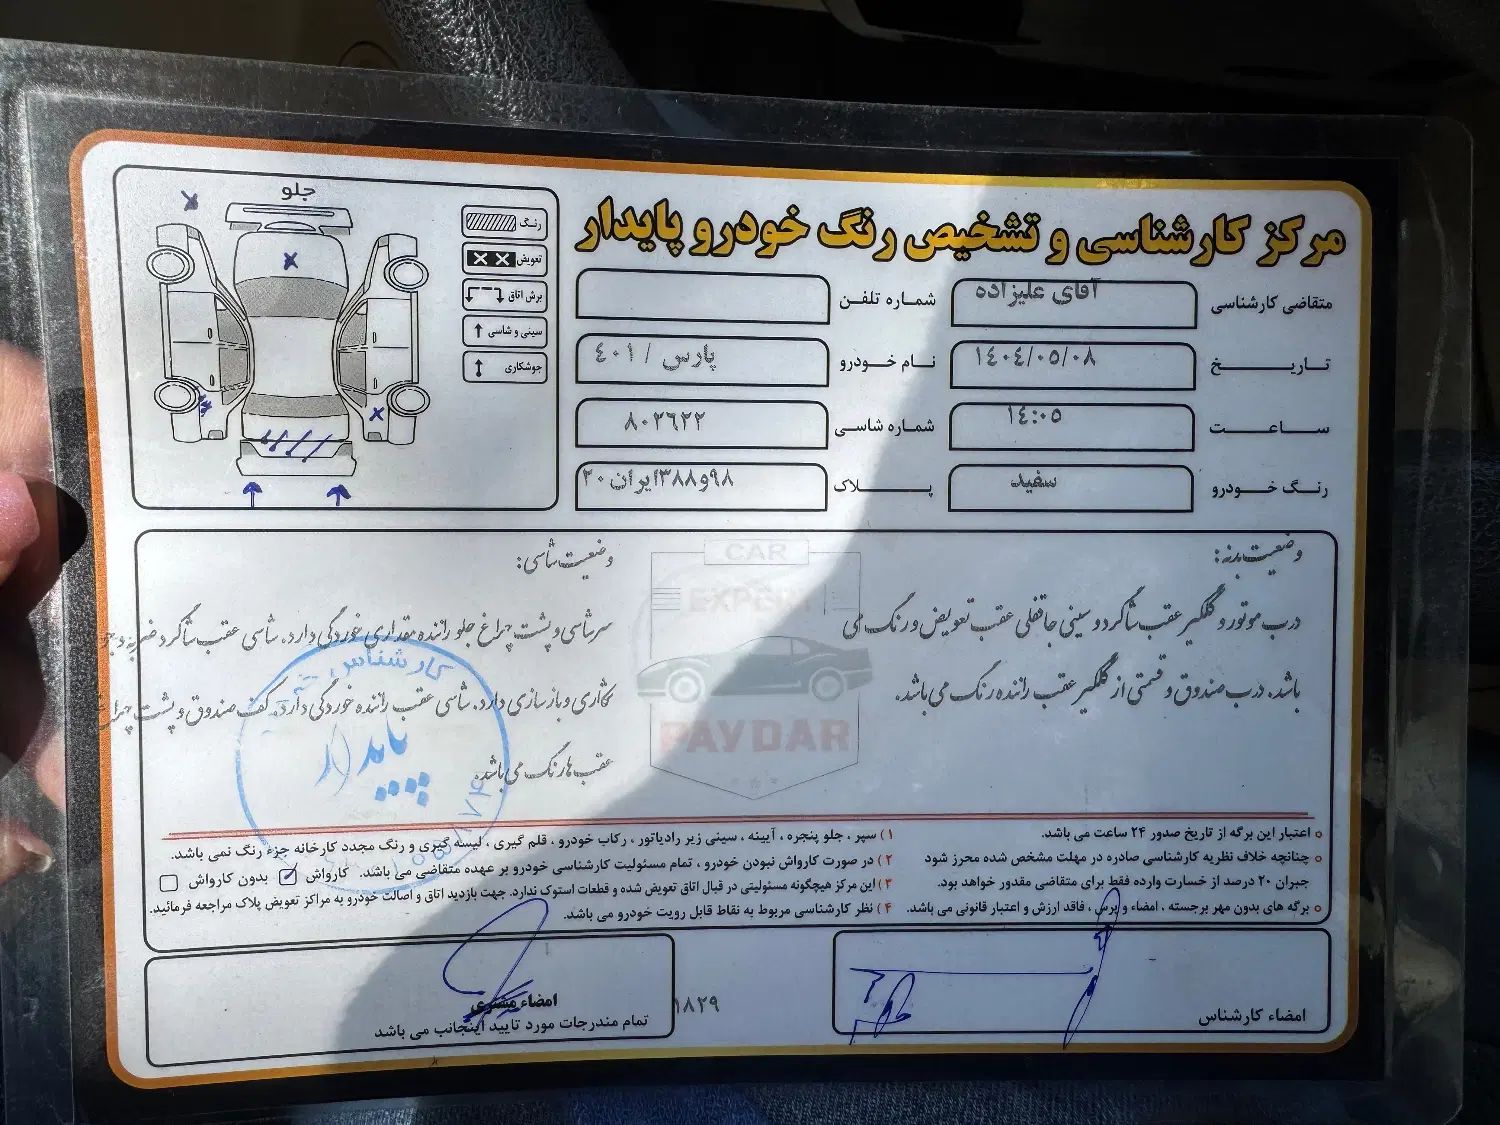 مرکز کارشناسی و تشخیص رنگ خودرو پایدار
متقاضی کارشناسی
آقای علیزاده
شماره تلفن
تاریخ
۱۴۰۴/۰۵/۰۸
نام خودرو
پارس / ۴۰۱
ساعت
۱۴:۰۵
شماره شاسی
۸۰۲۶۲۲
رنگ خودرو
سفید
پلاک
۹۸و۳۸۸ایران۲۰
جلو
رنگ
تعویض
برش اتاق
سینی و شاسی
جوشکاری
وضعیت بدنه:
درب موتور و گلگیر عقب شاگرد و سینی جا قفلی عقب تعویض و رنگ می
باشد. درب صندوق و قسمتی از گلگیر عقب راننده رنگ می باشد.
وضعیت شاسی:
سرشاسی و پشت چراغ جلو راننده مقداری خوردگی دارد. شاسی عقب شاگرد ضربه و جو
شکاری و بازسازی دارد. شاسی عقب راننده خوردگی دارد. کف صندوق و پشت چراغ
عقب ها رنگ می باشد.
CAR
EXPERT
PAYDAR
کارشناس
پایدار
○ اعتبار این برگه از تاریخ صدور ۲۴ ساعت می باشد.
○ چنانچه خلاف نظریه کارشناسی صادره در مهلت مشخص شده محرز شود
جبران ۲۰ درصد از خسارت وارده فقط برای متقاضی مقدور خواهد بود.
○ برگه های بدون مهر برجسته ، امضاء و پرس ، فاقد ارزش و اعتبار قانونی می باشد.
۱) سپر ، جلو پنجره ، آیینه ، سینی زیر رادیاتور ، رکاب خودرو ، قلم گیری ، لیسه گیری و رنگ مجدد کارخانه جزء رنگ نمی باشد.
۲) در صورت کارواش نبودن خودرو ، تمام مسئولیت کارشناسی خودرو بر عهده متقاضی می باشد. کارواش بدون کارواش
۳) این مرکز هیچگونه مسئولیتی در قبال اتاق تعویض شده و قطعات استوک ندارد. جهت بازدید اتاق و اصالت خودرو به مراکز تعویض پلاک مراجعه فرمائید.
۴) نظر کارشناسی مربوط به نقاط قابل رویت خودرو می باشد.
امضاء کارشناس
۱۸۲۹
امضاء مشتری
تمام مندرجات مورد تایید اینجانب می باشد